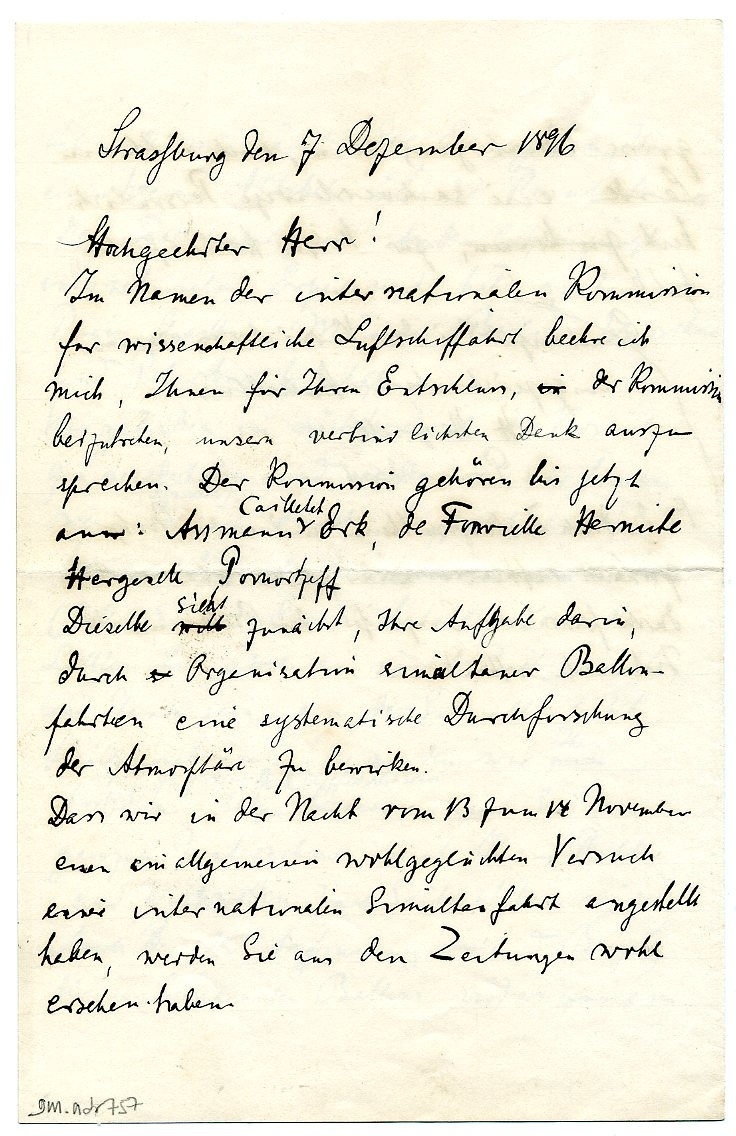 Strassburg den 7 Dezember 1896
Hochgeehrter Herr!
Im Namen der internationalen Kommission
für wissenschaftliche Luftschiffahrt beehre ich
mich, Ihnen für Ihren Entschluss, in der Kommission
beizutreten, unsern verbindlichsten Dank auszu
sprechen. Der Kommission gehören bis jetzt
Cailletet
an: Assmann Erk, de Fonvielle Hermite
Hergesell Pomortzeff
sieht
Dieselbe will zunächst, Ihre Aufgabe darin,
durch Organisation simultaner Ballon-
fahrten eine systematische Durchforschung
der Atmosphäre zu bewirken.
Dass wir in der Nacht vom 13 zum 14 November
einen im allgemeinen wohlgeglückten Versuch
einer internationalen Simultanfahrt angestellt
haben, werden Sie aus den Zeitungen wohl
ersehen haben.